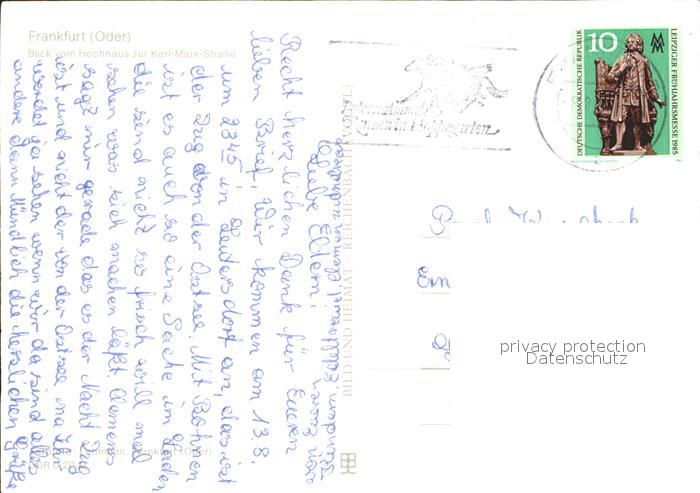 Frankfurt (Oder)
Blick vom Hochhaus zur Karl-Marx-Straße
Liebe Eltern!
Recht herzlichen Dank für Euren
lieben Brief. Wir kommen am 13.8.
um 2345 in Leutersdorf an, das ist
der Zug von der Ostsee. Mit Bohnen
ist es auch so eine Sache im Laden
die sind nicht so frisch, will mal
sehen was sich machen läßt Clemens
sagt mir gerade das es der Nacht Zug
ist und nicht der von der Ostsee na Ihr
werdet ja sehen wenn wir da sind alles
andere dann Mündlich die herzlichen Grüße
BILD UND HEIMAT REICHENBACH (VOGTL)
10
DEUTSCHE DEMOKRATISCHE REPUBLIK
LEIPZIGER FRÜHJAHRSMESSE 1985
in Hoppegarten
privacy protection
Datenschutz
Frankfurt (Oder)